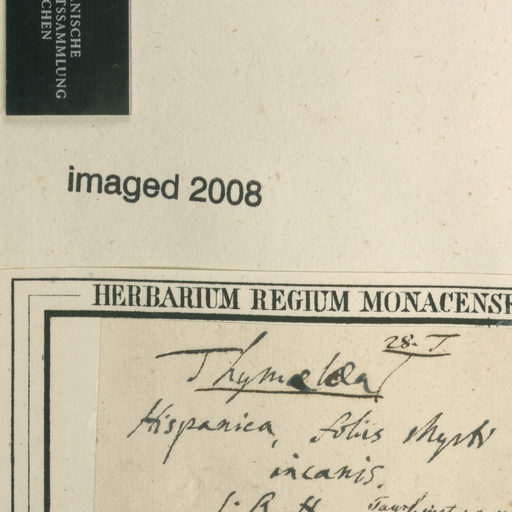 NISCHE
TSSAMMLUNG
CHEN
imaged 2008
HERBARIUM REGIUM MONACENSE
28. T.
Thymelæa
Hispanica, foliis Myrti
incanis.